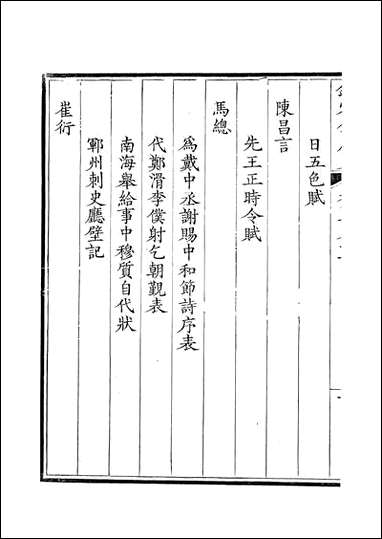 日五色賦
陳昌言
先王正時令賦
馬總
為戴中丞謝賜中和節詩序表
代鄭滑李僕射乞朝覲表
南海舉給事中穆質自代狀
鄆州刺史廳壁記
崔衍